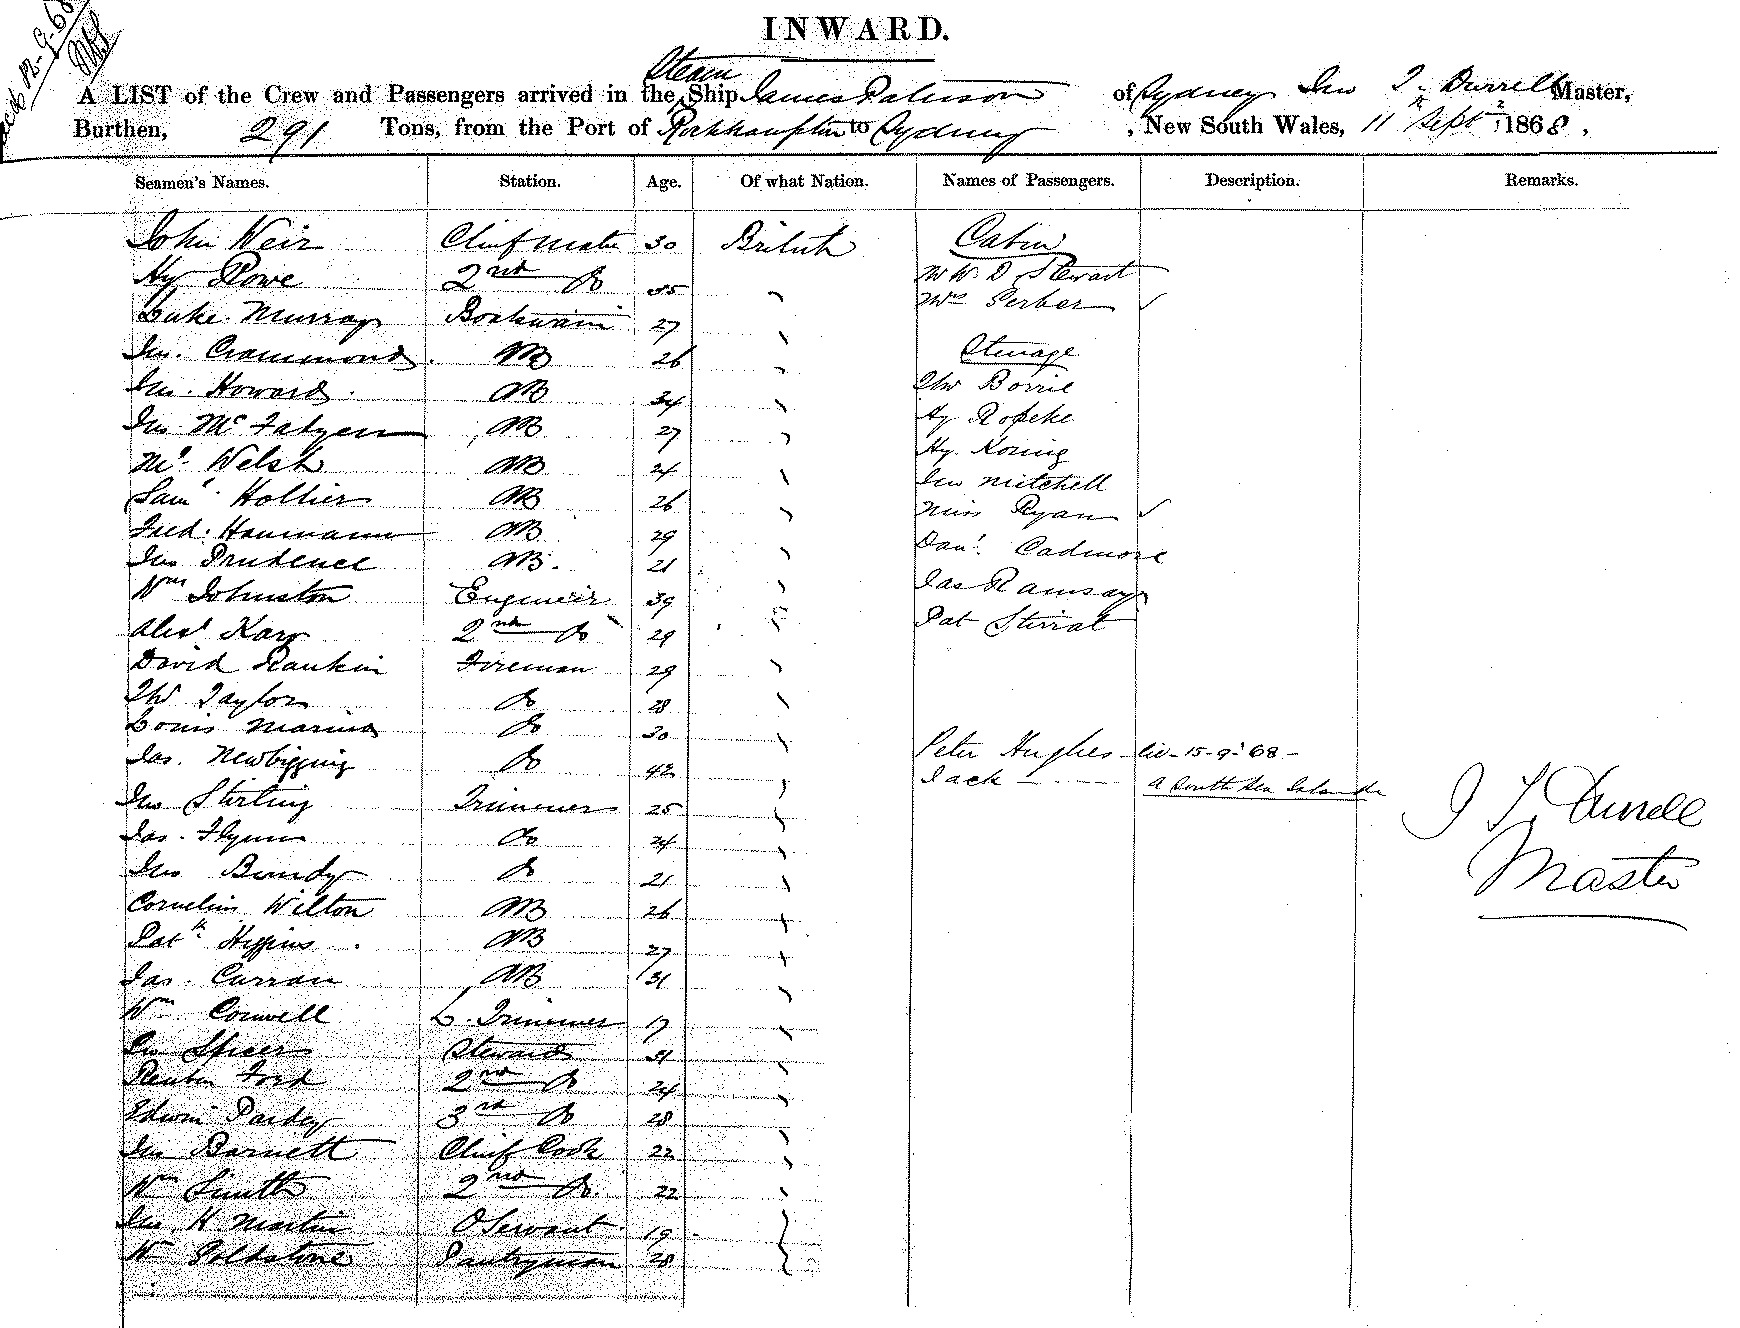 INWARD.
Steam
A LIST of the Crew and Passengers arrived in the Ship James Paterson of Sydney Jno T. Durrell Master,
Burthen, 291 Tons, from the Port of Rockhampton to Sydney, New South Wales, 11th Sept 1868.
Seamen's Names. Station. Age. Of what Nation. Names of Passengers. Description. Remarks.
John Weir Chief Mate 30 British Cabin
Hy Rowe 2nd Do 35 Mr W. D. Stewart
Luke Murray Boatswain 27 Mrs Gerber ✓
Jno. Crammond AB 26 Steerage
Jno. Howard AB 34 Thos Borrie
Jno McFadyen AB 27 Hy
Ml. Welsh AB 24 Hy. Konig
Saml. Hollier AB 26 Jno Mitchell
Fred. Hanmann AB 29 Miss Ryan ✓
Jno Prudence AB. 21 Danl. Cadmore
Wm Johnston Engineer 39 Jas Ramsay
Alexr Kay 2nd Do 29 Pat Stirrat
David Rankin Fireman 29
Thos Taylor Do 28
Louis Marino Do 30
Jas. Newbigging Do 42 Peter Hughes - liv - 15-9-'68 -
Jno Stirling Trimmer 25 Jack - a South Sea Islander
Jas. Flynn Do 24 J T. Durrell
Jno Bundy Do 21 Master
Cornelius Wilton AB 26
Patk Higgins AB 27
Jas. Curran AB 31
Wm Conwell L. Trimmer 17
Jno Spicer Steward 31
Reuben Ford 2nd Do 24
Edwin Pardey 3rd Do 28
Jno Barnett Chief Cook 22
Wm Smith 2nd Do. 22
Jno. H Martin O Servant 19
Wm Goldstone Pantryman 28